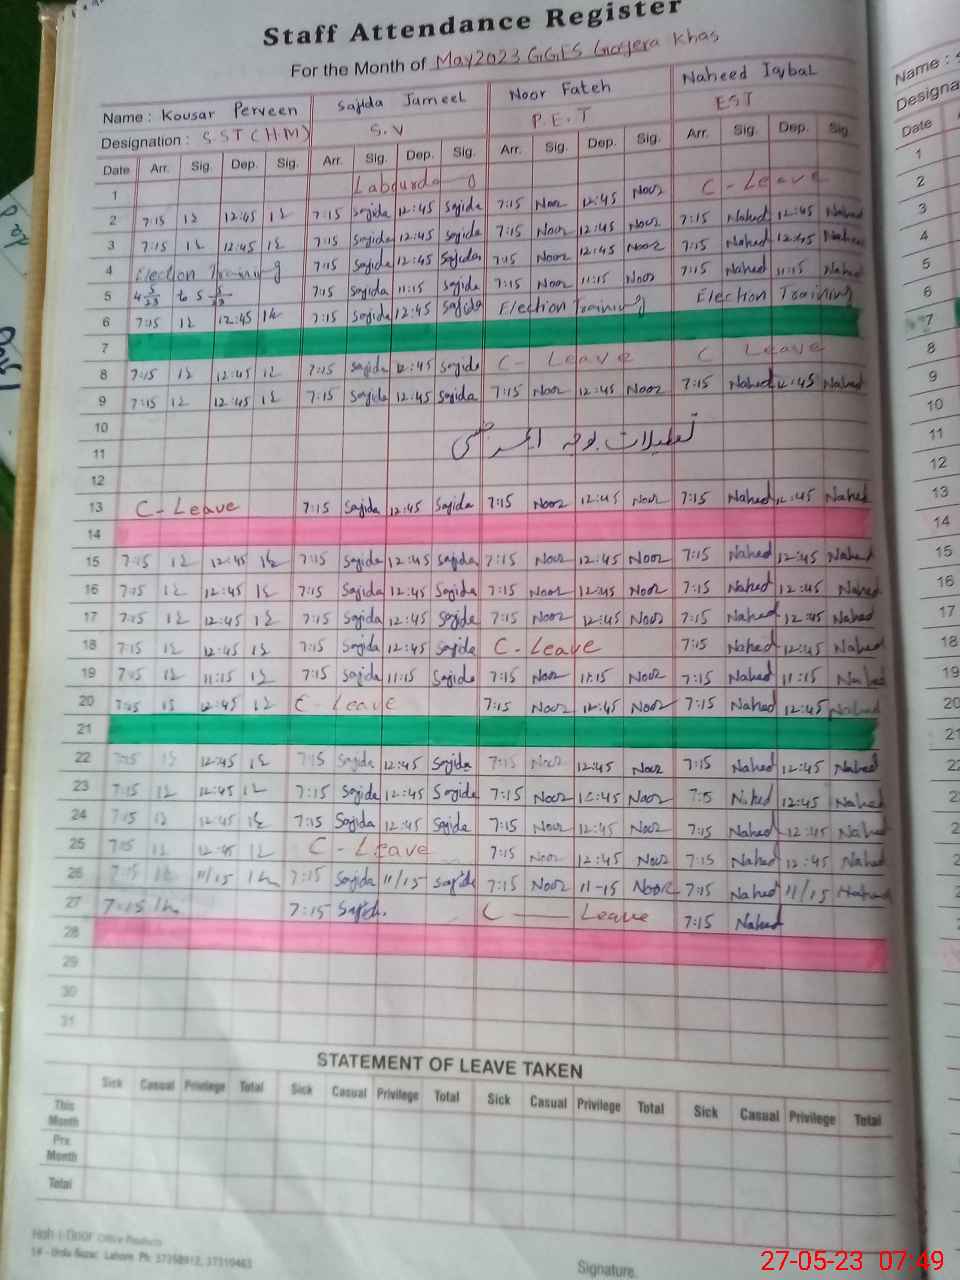 Staff Attendance Register
For the Month of May 2023 GGES Gogera Khas
Name : Kousar Perveen Sajida Jameel Noor Fateh Naheed Iqbal
Designation : S.ST (HM) S.V P.E.T EST
Date Arr. Sig. Dep. Sig. Arr. Sig. Dep. Sig. Arr. Sig. Dep. Sig. Arr. Sig. Dep. Sig.
1 C - Leave
2 7:15 12:45 7:15 Sajida 12:45 Sajida 7:15 Noor 12:45 Noor 7:15 Nahed 12:45 Nahed
3 7:15 12:45 7:15 Sajida 12:45 Sajida 7:15 Noor 12:45 Noor 7:15 Nahed 12:45 Nahed
4 Election Training 7:15 Sajida 12:45 Sajida 7:15 Noor 12:45 Noor 7:15 Nahed 12:45 Nahed
5 4 5/23 to 5 5/23 7:15 Sajida 11:15 Sajida 7:15 Noor 11:15 Noor 7:15 Nahed 11:15 Nahed
6 7:15 12:45 7:15 Sajida 12:45 Sajida Election Training Election Training
7
8 7:15 12:45 7:15 Sajida 12:45 Sajida C - Leave C Leave
9 7:15 12:45 7:15 Sajida 12:45 Sajida 7:15 Noor 12:45 Noor 7:15 Nahed 12:45 Nahed
10
تعطیلات بوجہ ایمرجنسی
11
12
13 C - Leave 7:15 Sajida 12:45 Sajida 7:15 Noor 12:45 Noor 7:15 Nahed 12:45 Nahed
14
15 7:15 12:45 7:15 Sajida 12:45 Sajida 7:15 Noor 12:45 Noor 7:15 Nahed 12:45 Nahed
16 7:15 12:45 7:15 Sajida 12:45 Sajida 7:15 Noor 12:45 Noor 7:15 Nahed 12:45 Nahed
17 7:15 12:45 7:15 Sajida 12:45 Sajida 7:15 Noor 12:45 Noor 7:15 Nahed 12:45 Nahed
18 7:15 12:45 7:15 Sajida 12:45 Sajida C - Leave 7:15 Nahed 12:45 Nahed
19 7:15 11:15 7:15 Sajida 11:15 Sajida 7:15 Noor 11:15 Noor 7:15 Nahed 11:15 Nahed
20 7:15 12:45 C - Leave 7:15 Noor 12:45 Noor 7:15 Nahed 12:45 Nahed
21
22 7:15 12:45 7:15 Sajida 12:45 Sajida 7:15 Noor 12:45 Noor 7:15 Nahed 12:45 Nahed
23 7:15 12:45 7:15 Sajida 12:45 Sajida 7:15 Noor 12:45 Noor 7:5 Nahed 12:45 Nahed
24 7:15 12:45 7:15 Sajida 12:45 Sajida 7:15 Noor 12:45 Noor 7:15 Nahed 12:45 Nahed
25 7:15 12:45 C - Leave 7:15 Noor 12:45 Noor 7:15 Nahed 12:45 Nahed
26 7:15 11/15 7:15 Sajida 11/15 Sajida 7:15 Noor 11-15 Noor 7:15 Nahed 11/15 Nahed
27 7:15 7:15 Sajida C — Leave 7:15 Nahed
28
29
30
31
STATEMENT OF LEAVE TAKEN
Sick Casual Privilege Total Sick Casual Privilege Total Sick Casual Privilege Total Sick Casual Privilege Total
This Month
Pre Month
Total
Office Products
Urdu Bazar, Lahore. Ph:
Signature.
Name :
Designa
Date
1
2
3
4
5
6
7
8
9
10
11
12
13
14
15
16
17
18
19
20
27-05-23 07:49